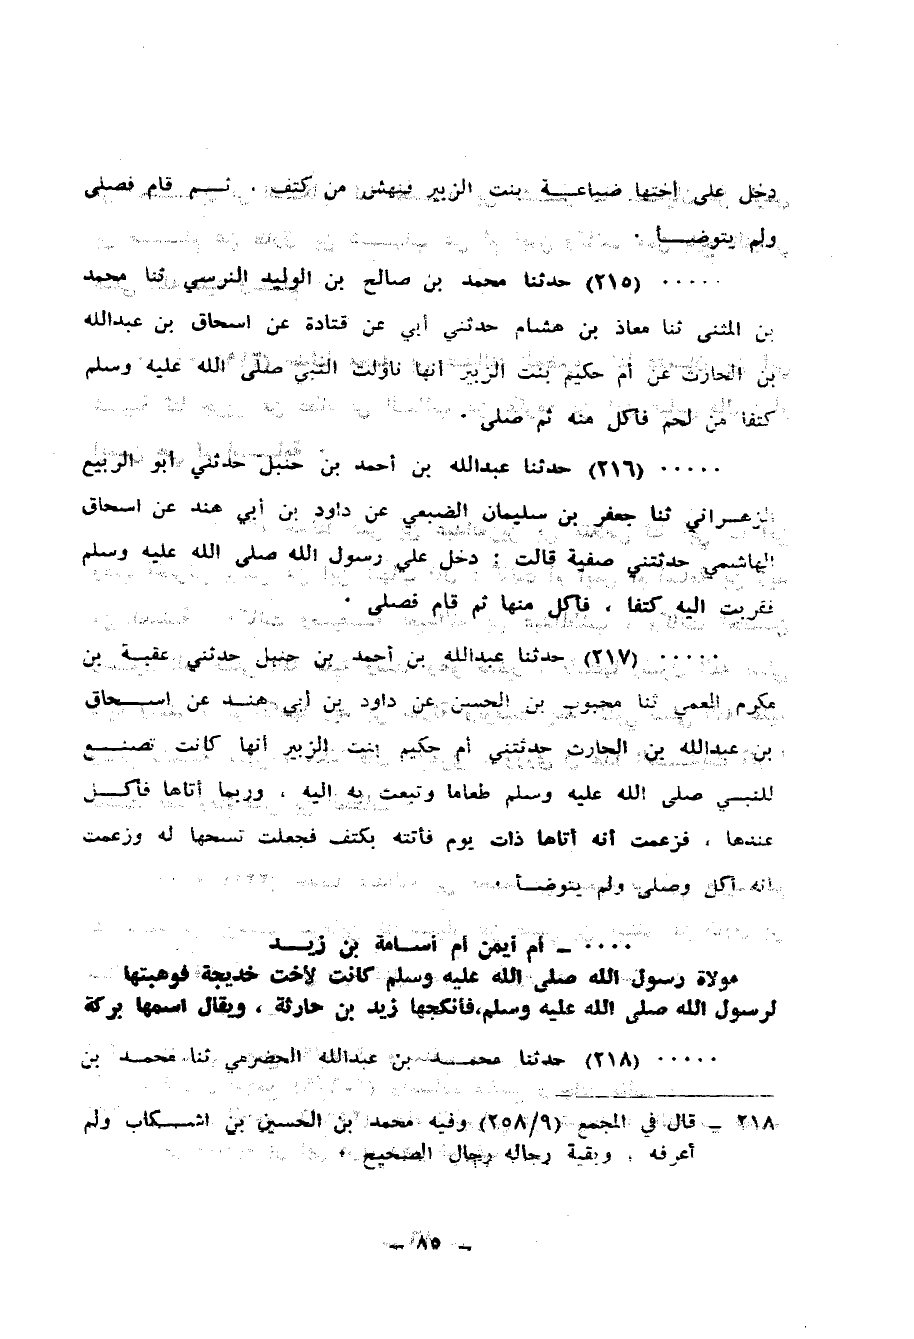 دخل على أختها ضباعة بنت الزبير فينهش من كتف . ثم قام فصلى
ولم يتوضأ .
..... (٢١٥) حدثنا محمد بن صالح بن الوليد النرسي ثنا محمد
بن المثنى ثنا معاذ بن هشام حدثني أبي عن قتادة عن اسحاق بن عبدالله
بن الحارث عن أم حكيم بنت الزبير أنها ناولت النبي صلى الله عليه وسلم
كتفا من لحم فأكل منه ثم صلى .
..... (٢١٦) حدثنا عبدالله بن أحمد بن حنبل حدثني أبو الربيع
الزهراني ثنا جعفر بن سليمان الضبعي عن داود بن أبي هند عن اسحاق
الهاشمي حدثتني صفية قالت : دخل علي رسول الله صلى الله عليه وسلم
فقربت اليه كتفا ، فأكل منها ثم قام فصلى .
..... (٢١٧) حدثنا عبدالله بن أحمد بن حنبل حدثني عقبة بن
مكرم العمي ثنا محبوب بن الحسن عن داود بن أبي هند عن اسحاق
بن عبدالله بن الحارث حدثتني أم حكيم بنت الزبير أنها كانت تصنع
للنبي صلى الله عليه وسلم طعاما وتبعث به اليه ، وربما أتاها فأكل
عندها ، فزعمت أنه أتاها ذات يوم فأتته بكتف فجعلت تسحها له وزعمت
أنه أكل وصلى ولم يتوضأ .
.... ــ أم أيمن أم أسامة بن زيد
مولاة رسول الله صلى الله عليه وسلم كانت لأخت خديجة فوهبتها
لرسول الله صلى الله عليه وسلم،فأنكجها زيد بن حارثة ، ويقال اسمها بركة
..... (٢١٨) حدثنا محمد بن عبدالله الحضرمي ثنا محمد بن
٢١٨ ــ قال في المجمع (٢٥٨/٩) وفيه محمد بن الحسين بن اشكاب ولم
أعرفه ، وبقية رجاله رجال الصحيح .
ــ ٨٥ ــ